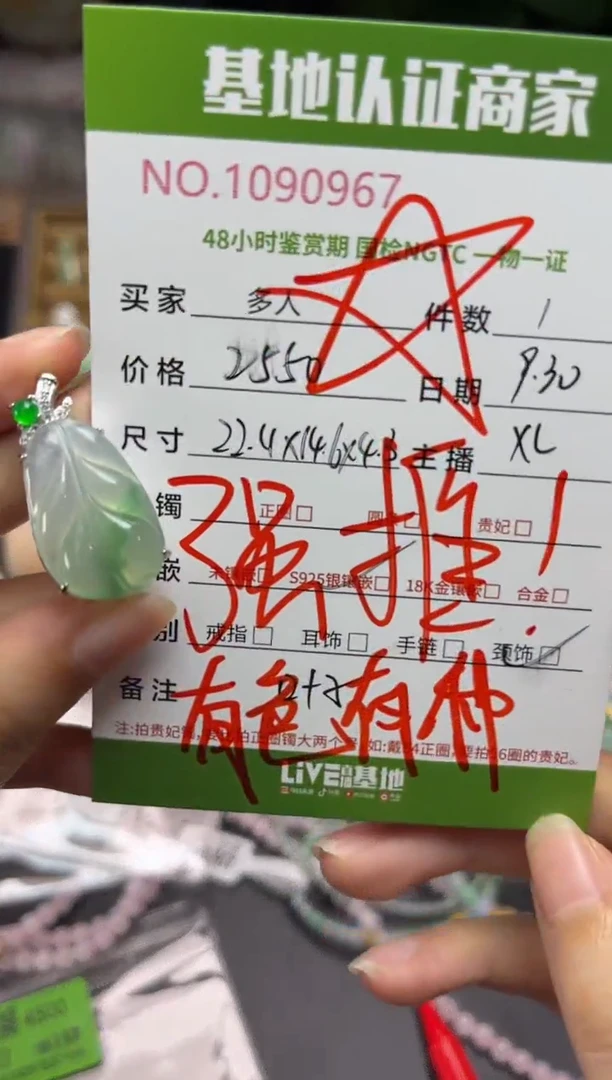 基地认证商家
NO.1090967
48小时鉴赏期 国检NGTC 一物一证
买家 多人 件数 1
价格 2550 日期 9.30
尺寸 22.4×14.6×4.3 主播 XL
镯 正圈□ 圆□ 贵妃□
强推！
嵌 未镶嵌□ S925银镶嵌□ 18K金镶嵌□ 合金□
别 戒指□ 耳饰□ 手链□ 颈饰□
备注
有色有种
注:拍贵妃 拍正圈镯大两个 如:戴54正圈,要拍56圈的贵妃。
LIVE 基地